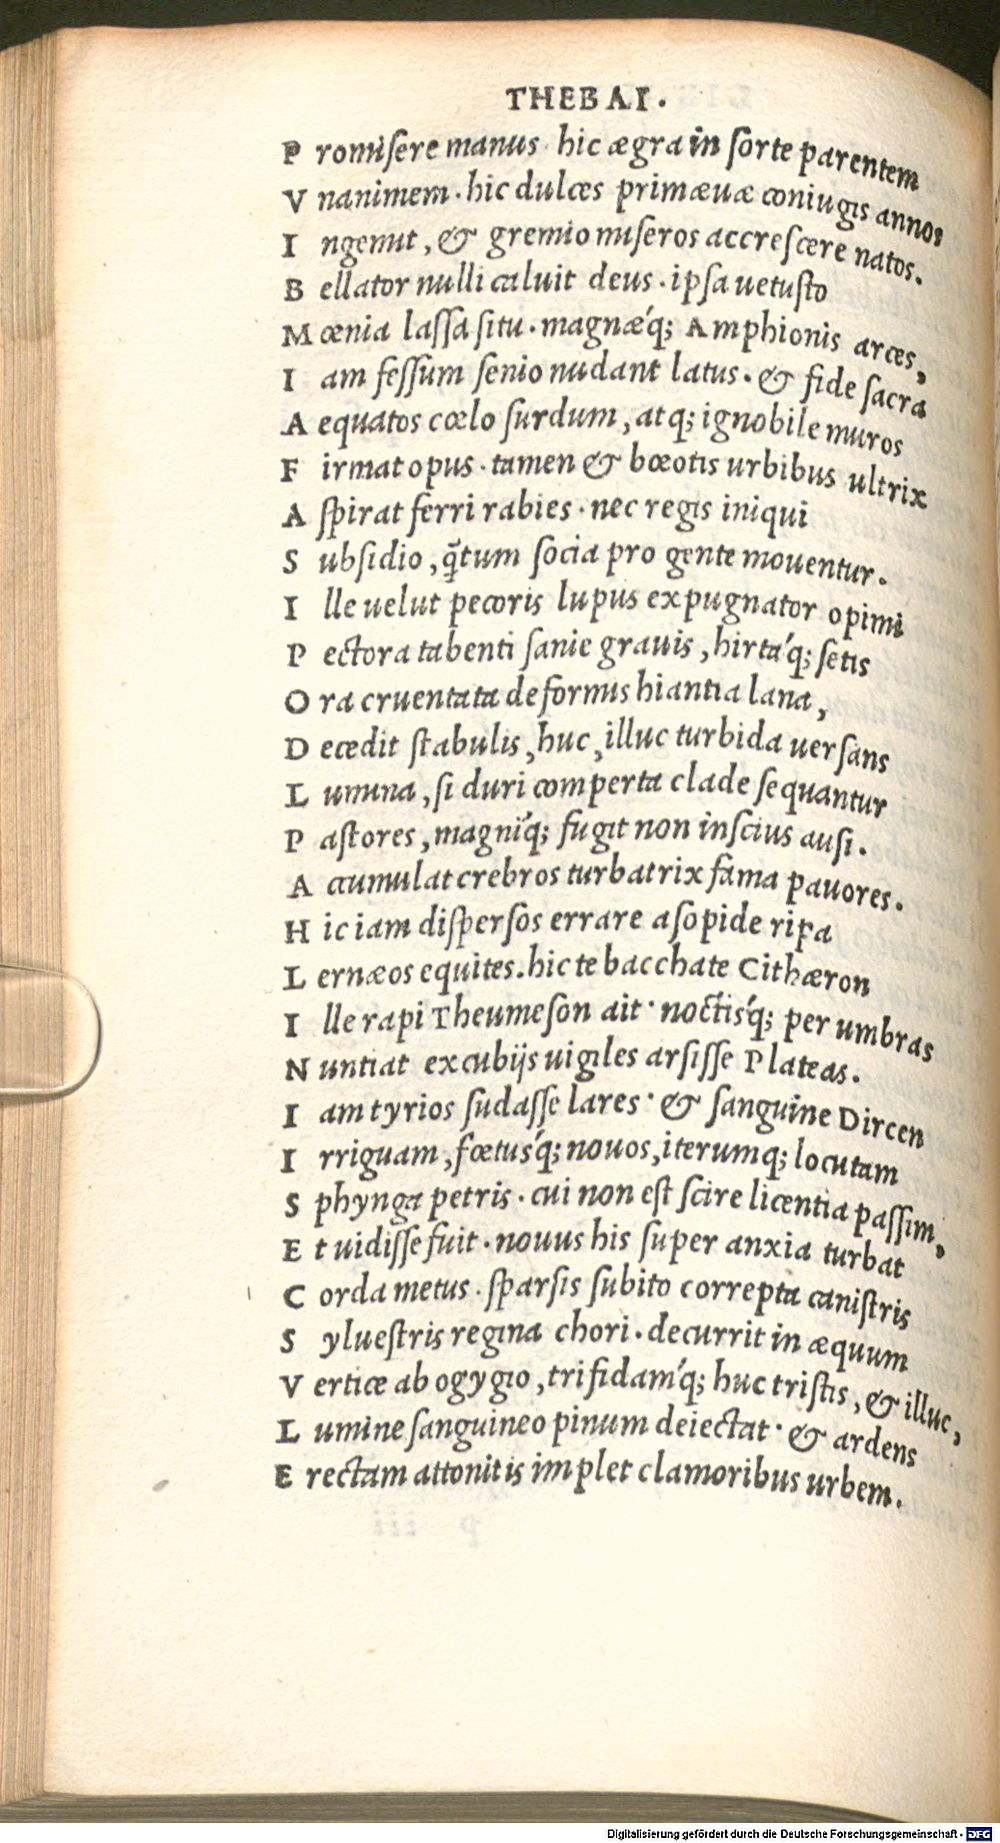 THEBAI.
P romisere manus. hic ægra in ſorte parentem
V nanimem. hic dulces primæuæ coniugis annos
I ngemit, & gremio miſeros accreſcere natos.
B ellator nulli caluit deus. ipſa uetuſto
M œnia laſſa ſitu. magnæq́; Amphionis arces,
I am feſſum ſenio nudant latus. & fide ſacra
A equatos cœlo ſurdum, atq; ignobile muros
F irmat opus. tamen & bœotis urbibus ultrix
A ſpirat ferri rabies. nec regis iniqui
S ubſidio, q̃tum ſocia pro gente mouentur.
I lle uelut pecoris lupus expugnator opimi
P ectora tabenti ſanie grauis, hirtaq́; ſetis
O ra cruentata deformis hiantia lana,
D ecedit ſtabulis, huc, illuc turbida uerſans
L umina, ſi duri comperta clade ſequantur
P aſtores, magniq́; fugit non inſcius auſi.
A ccumulat crebros turbatrix fama pauores.
H ic iam diſperſos errare aſopide ripa
L ernæos equites. hic te bacchate Cithæron
I lle rapi Theumeſon ait. noctisq́; per umbras
N untiat excubijs uigiles arſiſſe Plateas.
I am tyrios ſudaſſe lares. & ſanguine Dircen
I rriguam, fœtusq́; nouos, iterumq; locutam
S phynga petris. cui non eſt ſcire licentia paſſim,
E t uidiſſe fuit. nouus his ſuper anxia turbat
C orda metus. ſparſis ſubito correpta caniſtris
S ylueſtris regina chori. decurrit in æquum
V ertice ab ogygio, trifidamq́; huc triſtis, & illuc,
L umine ſanguineo pinum deiectat. & ardens
E rectam attonitis implet clamoribus urbem.
Digitalisierung gefördert durch die Deutsche Forschungsgemeinschaft - DFG